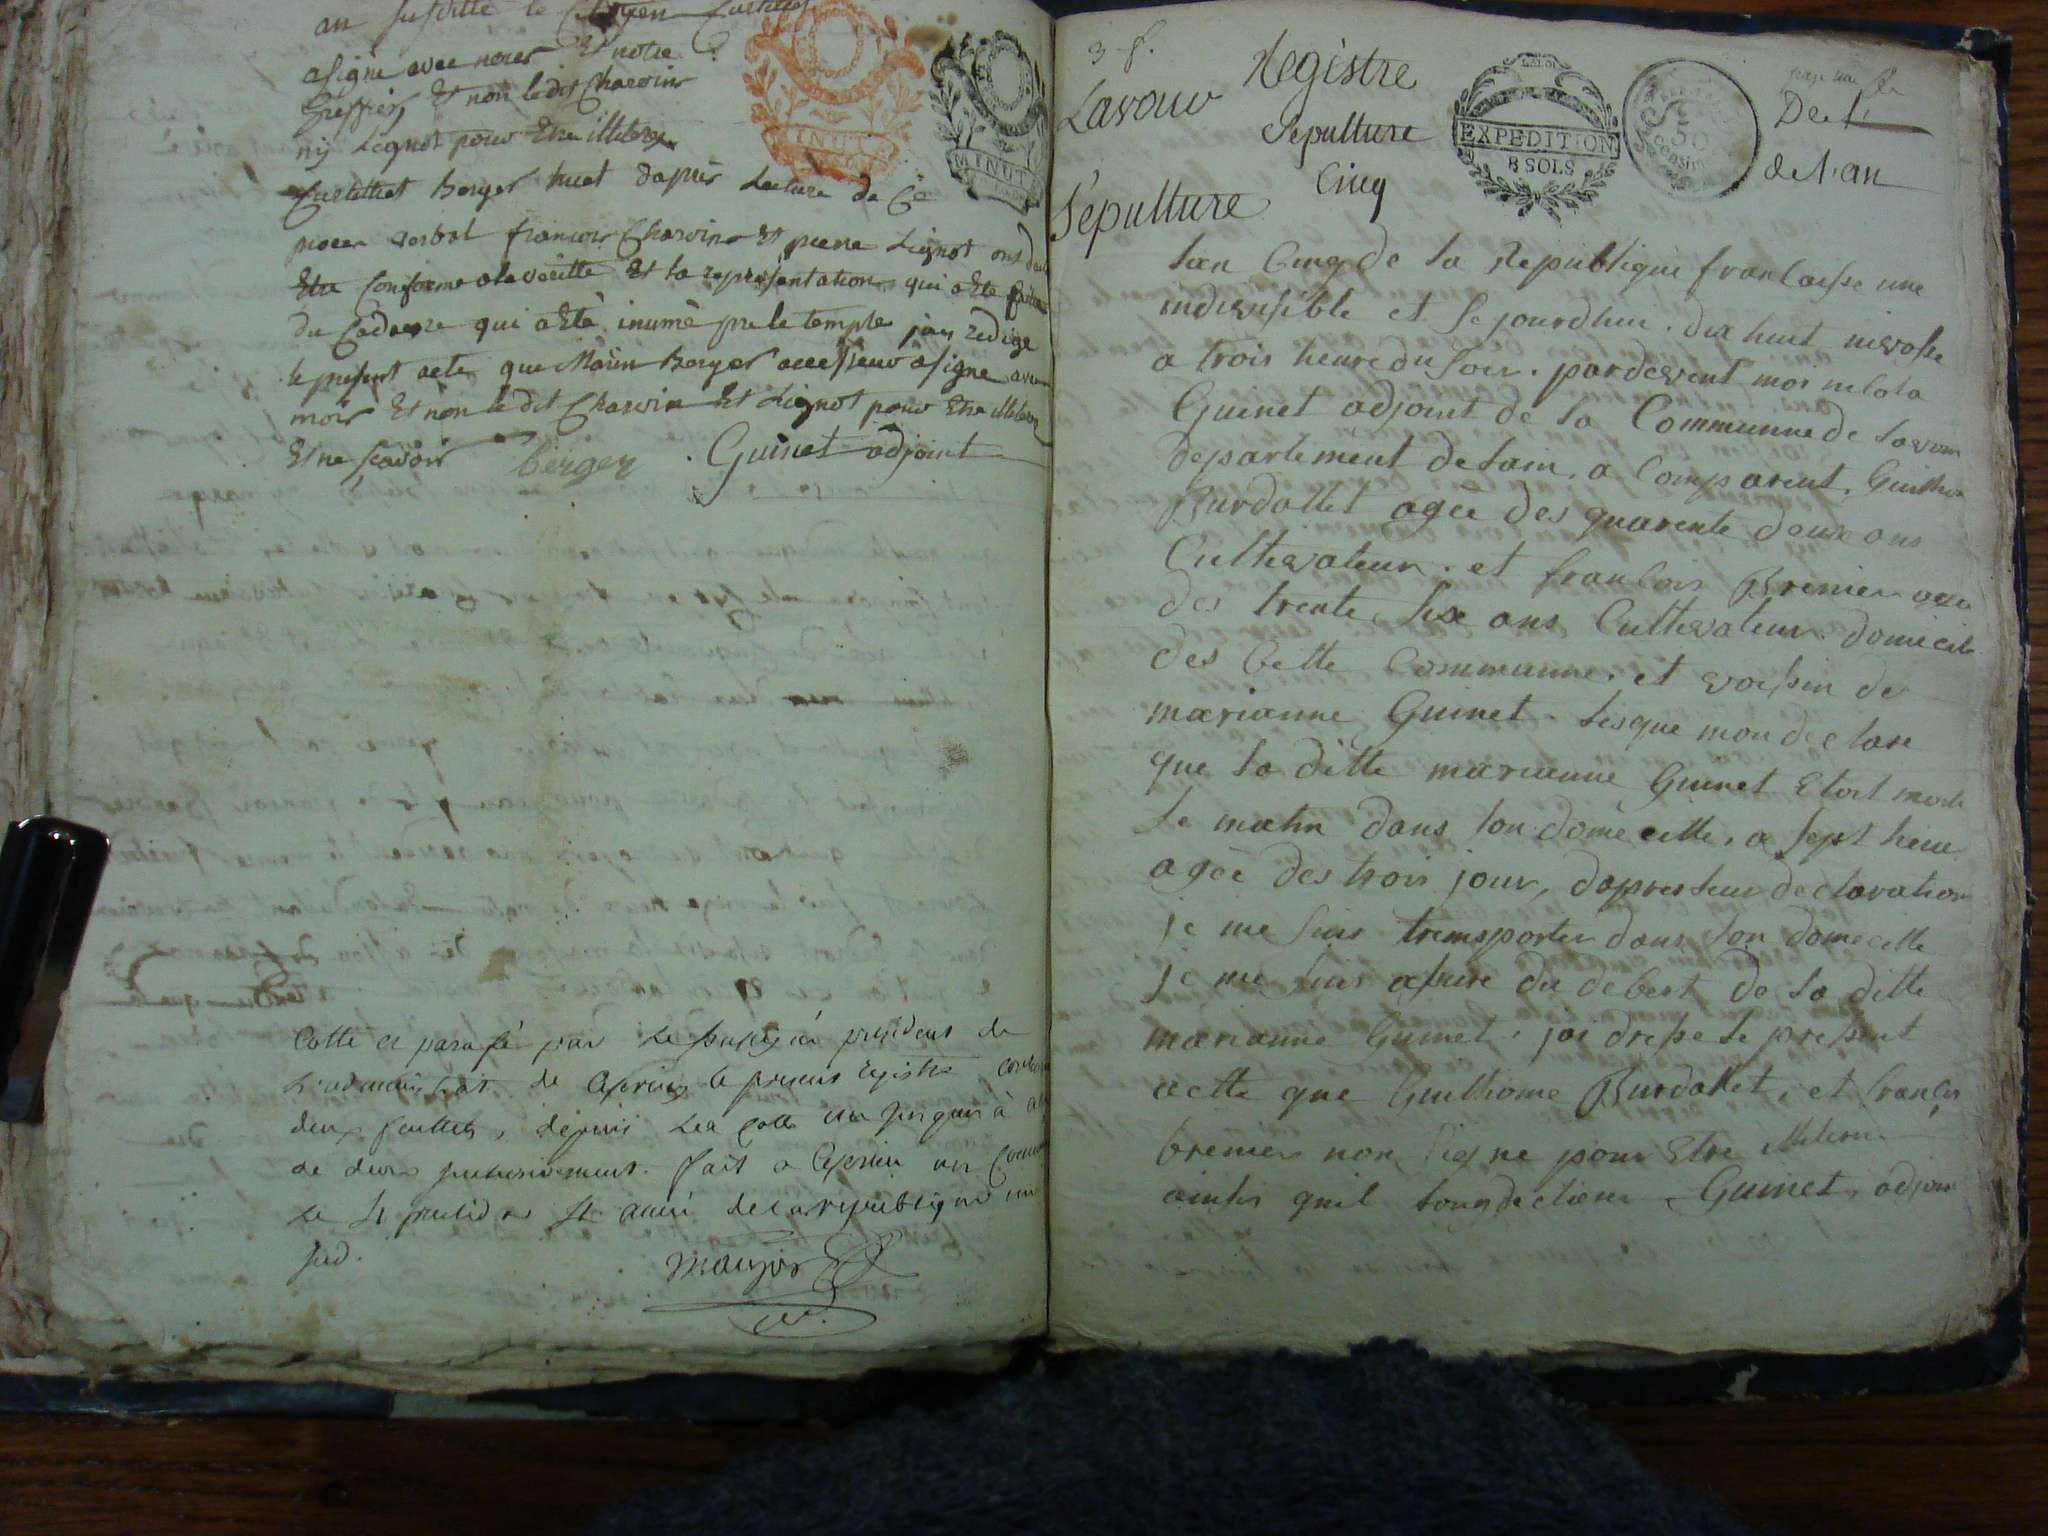 an susditte le Citoyen
asigne avec nous Et notre
Greffier Et non ledit Charvin
ny Legnot pour Etre illiteres
MINUT
MINUT
Berger huet dapres Lecture de Ce
verbal francois Charvin Et pierre Lignot ont
Etre Conforme a la veritte Et la representation qui a Ete faite
du Cadavre qui a Eté inumé pre le temple jay redige
le present acte que Marin Berger accesseur a signe avec
moir Et non le dit Charvin Et Lignot pour Etre
Et ne scavoir berger Guinet adjoint
Cotté et parafé par le president de
de le present registre
deux feuillets, depuis la cotte un jusqua a
de deux fait a
le 4 4 année de la republique une
ind.
3 f.
Lavour
Registre
Sepulture
Cinq
EXPEDITION
8 SOLS
50
De l'
de l'an
Sépulture
lan Cinq de la Republique francaisse une
indivisible et Se jourdhui. dix huit nivosse
a trois heure du soir. pardevent moi
Guinet adjoint de la Communne de Lavour
departement de Lain, a Comparent, Guilliome
Burdallet agée des quarente deux ans
Cultivateur. et francois Brenier agee
des trente Six ans Cultivateur domicile
des Cette Communne. et voissin de
marianne Guinet. lesque mon declare
que la ditte marianne Guinet Etoit morte
le matin dans son domecille, a sept heure
agée des trois jour, dapres leur declaration
je me suis tremsporter dans son domecille
je me suis assure du debest de la ditte
marianne Guinet. jai dresse le pressent
actte que Guilliome Burdallet, et francois
brenier non signe pour Etre
ainsis quil Guinet, adjoint